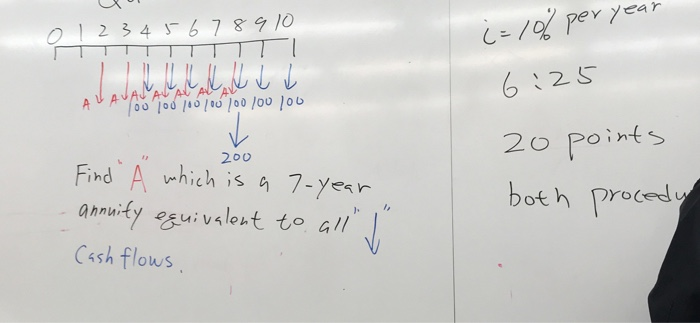 0 1 2 3 4 5 6 7 8 9 10
A A A A A A A
100 100 100 100 100 100 100
200
Find "A" which is a 7-year
annuity equivalent to all "↓"
Cash flows.
i = 10% per year
6:25
20 points
both procedu